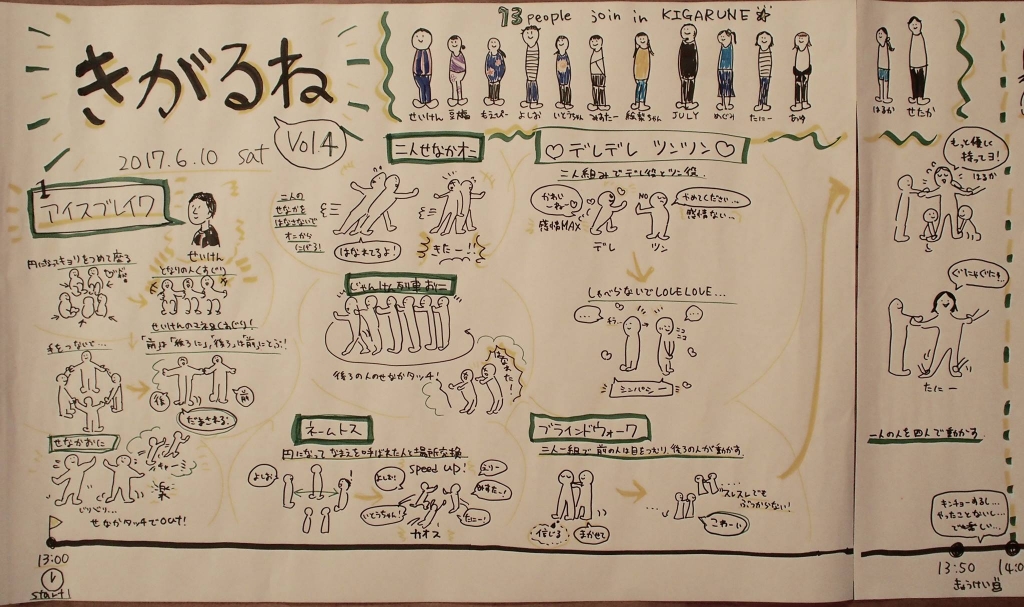 きがるね
Vol.4
2017.6.10 sat
13 people join in KIGARUNE
せいけん
もえぴー
よしお
いとうちゃん
みすたー
JULY
めぐみ
たにー
あゆ
はるか
せたか
1
アイスブレイク
せいけん
円になってキョリをつめて座る
となりの人くすぐり
せいけんのマネ&くすぐり!
手をつないで…
「前」は「後ろ」に、「後ろ」は「前」にとぶ!
後
前
だまされる!
せなかおに
じりじり…
せなかタッチでout!
二人せなかオニ
二人の
せなかを
はなさないで
オニから
にげろ!
はなれてるよ!
きたー!!
じゃんけん列車おに
後ろの人のせなかタッチ!
ネームトス
円になって なまえを呼ばれた人と場所交換
よしお
speed UP!
よしお!
いとうちゃん!
えりー
めすたー!
たにー!
カオス
デレデレ ツンツン
二人組みでデレ役とツン役
かわいーねー
感情MAX
デレ
NO
ツン
やめてください…
感情ない…
しゃべらないでLOVE LOVE…
ニコ
ニコ
シンパシー
ブラインドウォーク
二人一組で前の人は目をつむり、後ろの人が動かす
信じる
まかせて
スレスレでも
ぶつからない!
こわーい
もっと優しく
持ってヨ!
はるか
ぐにゃぐにゃ
たにー
一人の人を四人で動かす
キンチョーするし…
やったことないし…
13:00
start!
13:50
きゅうけい
14:0